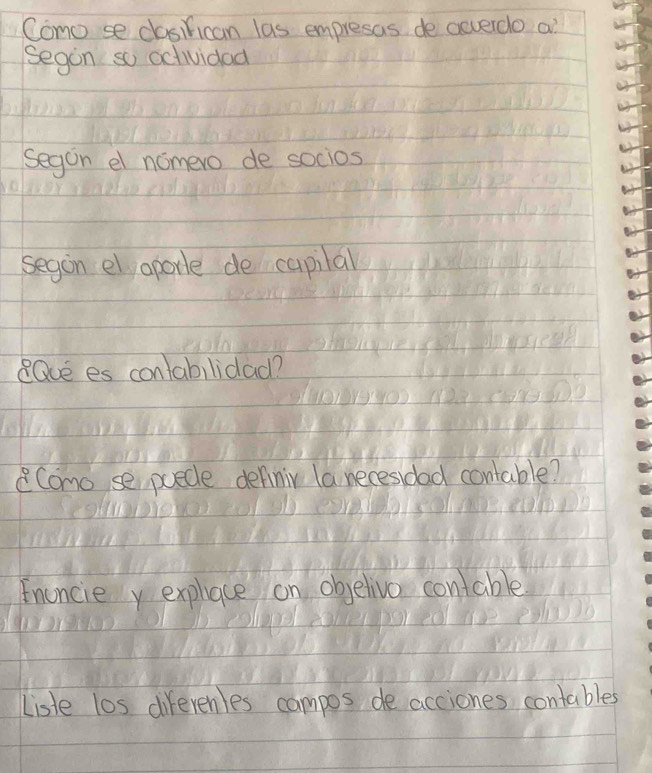 Cómo se clasifican las empresas de acuerdo a:
Según su actividad
Según el número de socios
Según el aporte de capital
¿Qué es contabilidad?
¿Cómo se puede definir la necesidad contable?
Enuncie y explique un objetivo contable.
Liste los diferentes campos de acciones contables